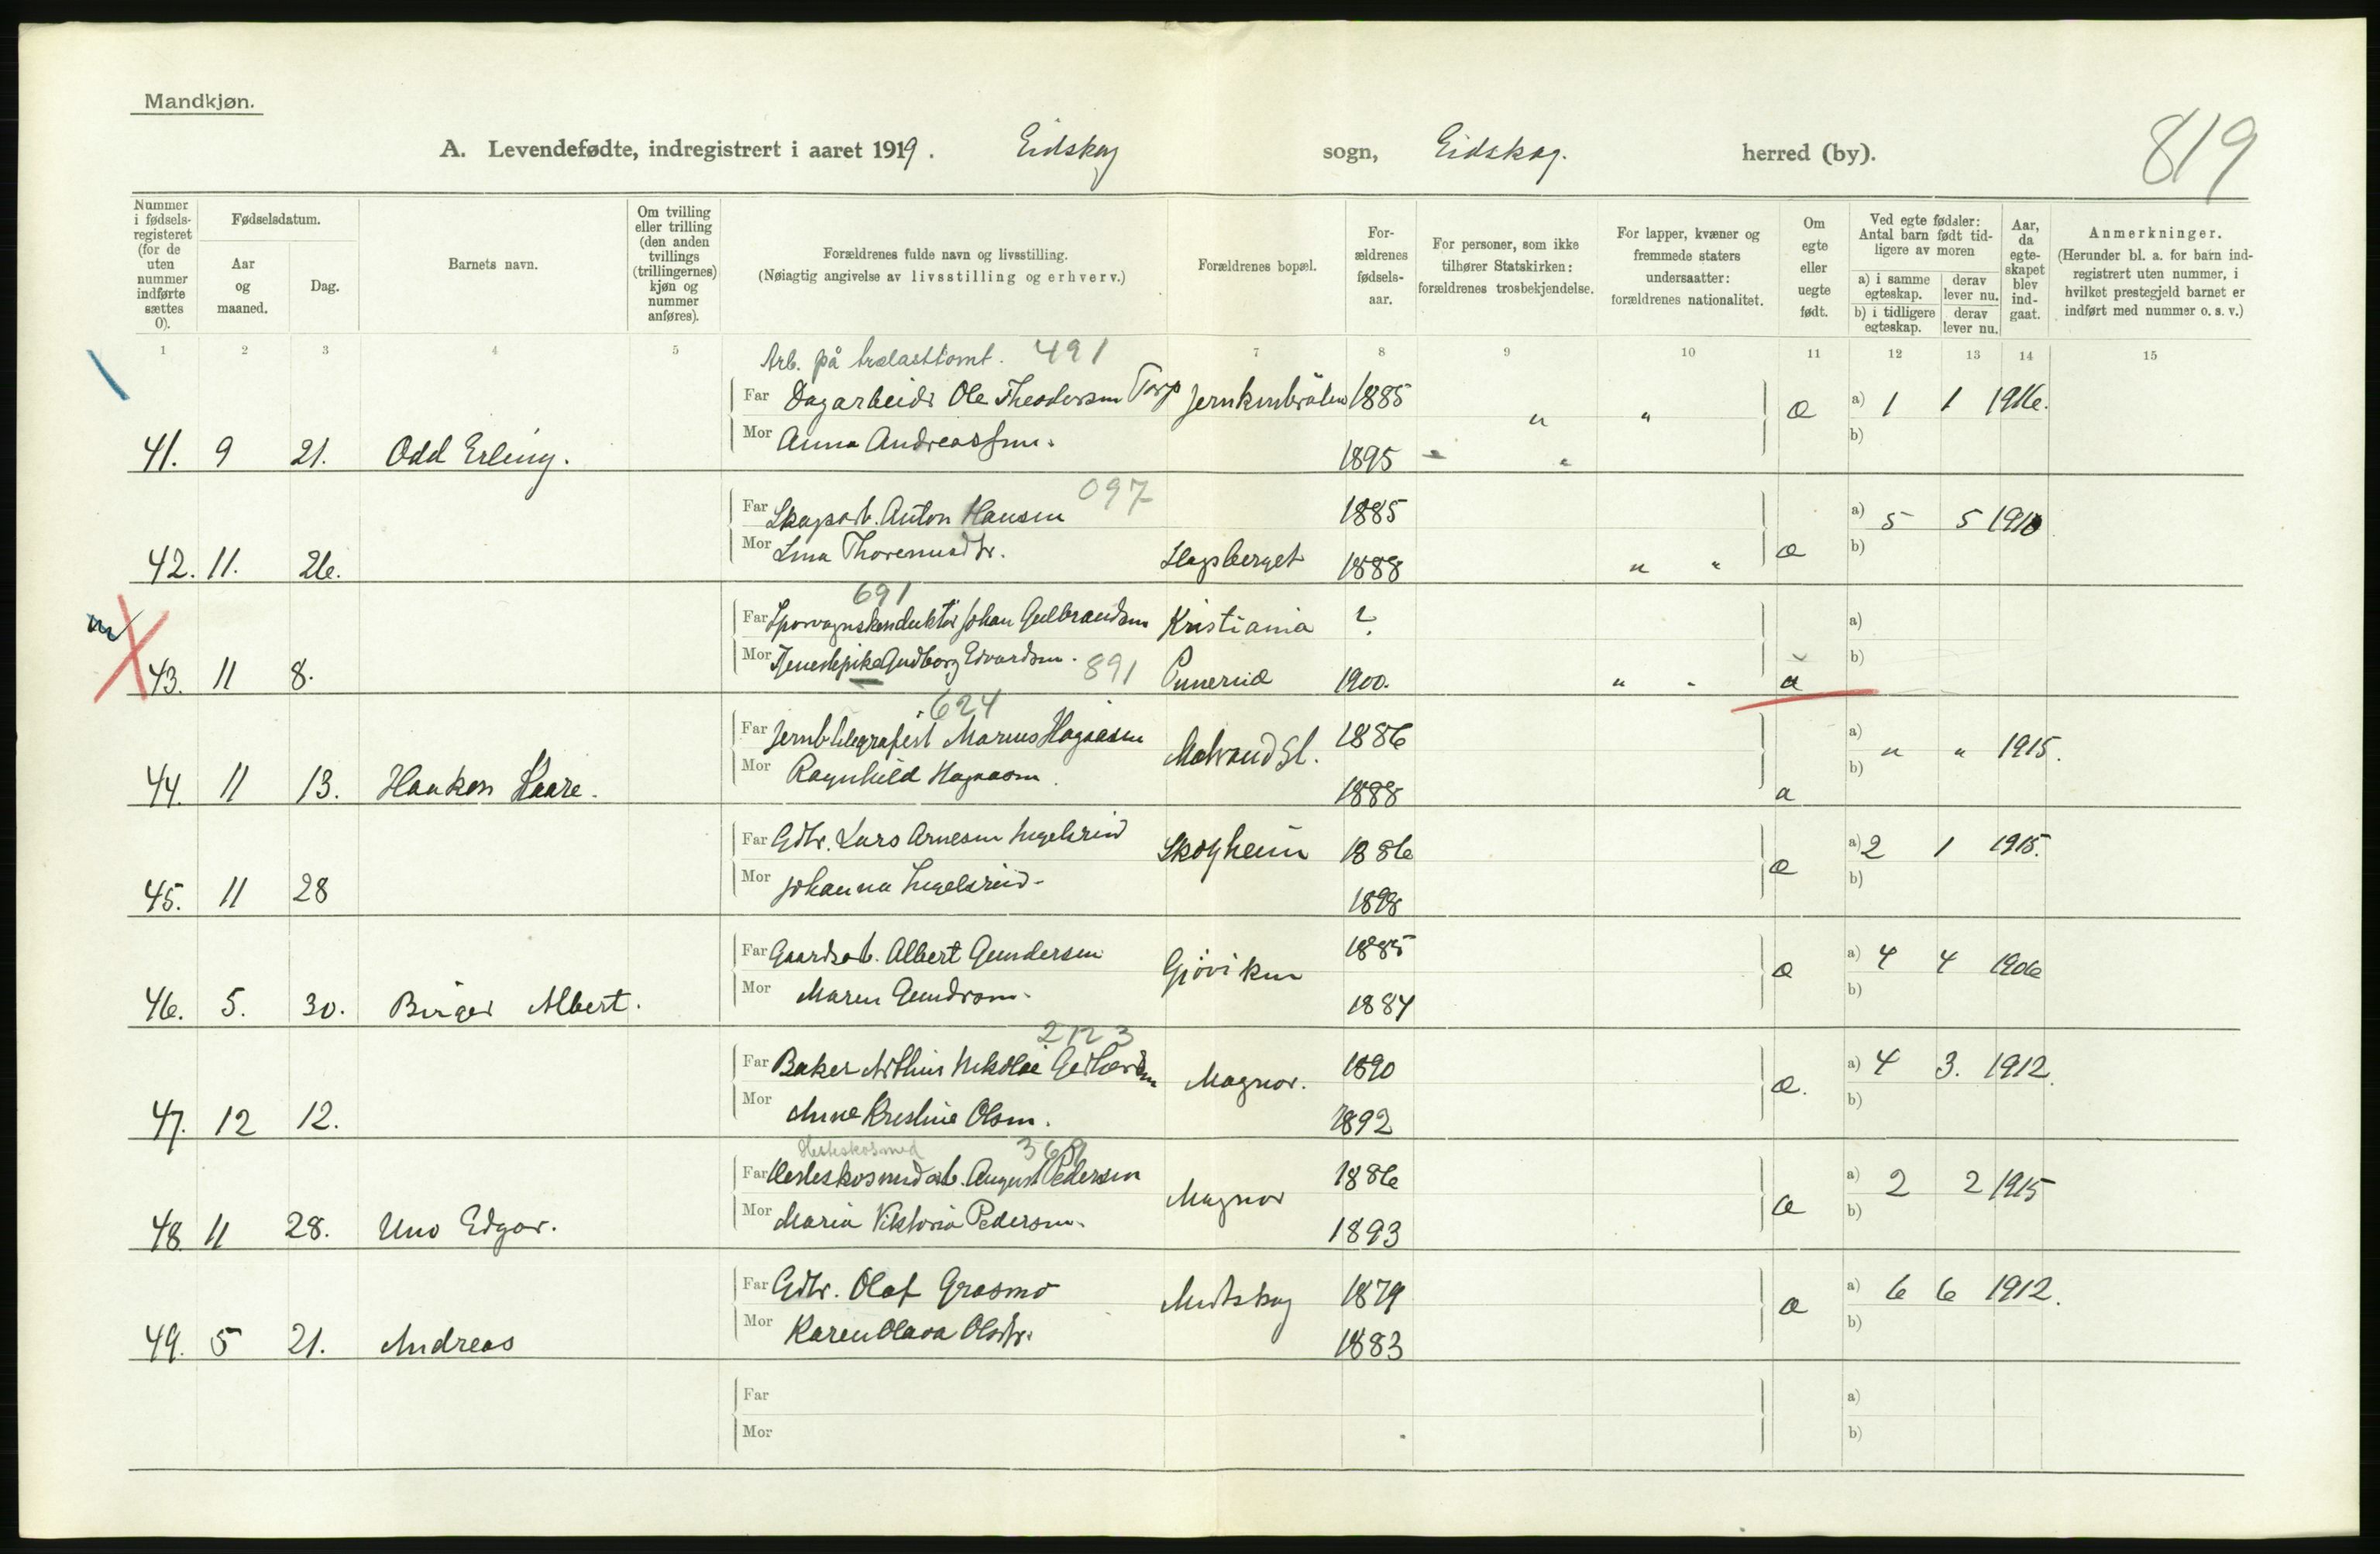 Mandkjøn.
819
A. Levendefødte, indregistrert i aaret 1919. Eidskog sogn, Eidskog. herred (by).
Nummer i fødsels-registeret (for de uten nummer indførte sættes 0).
Fødselsdatum.
Aar og maaned.
Dag.
Barnets navn.
Om tvilling eller trilling (den anden tvillings (trillingernes) kjøn og nummer anføres).
Forældrenes fulde navn og livsstilling.
(Nøiagtig angivelse av livsstilling og erhverv.)
Forældrenes bopæl.
For-ældrenes fødsels-aar.
For personer, som ikke tilhører Statskirken: forældrenes trosbekjendelse.
For lapper, kvæner og fremmede staters undersaatter: forældrenes nationalitet.
Om egte eller uegte født.
Ved egte fødsler: Antal barn født tid-ligere av moren
a) i samme egteskap.
derav lever nu.
b) i tidligere egteskap.
derav lever nu.
Aar, da egte-skapet blev ind-gaat.
Anmerkninger.
(Herunder bl. a. for barn ind-registrert uten nummer, i hvilket prestegjeld barnet er indført med nummer o. s. v.)
1 2 3 4 5 7 8 9 10 11 12 13 14 15
Arb. på trælasttomt. 491
Far Dagarbeider Ole Theodorsen Torp 1885 " " æ a) 1 1 1916.
Mor Anna Andreassen. b)
41. 9 21. Odd Erling. 1895 " "
097
Far Skogsarb. Anton Hansen 1885 a) 5 5 1910
Mor Lina b)
42. 11. 26. 1888 " " æ
691
Far Sporvognskonduktør Johan Gulbrandsen Kristiania ? a)
Mor Tjenestepike Gudborg Edvardsen. 891 b)
43. 11 8. 1900. " " u
624
Far Jernb.telegrafist Marius Hagaasen Matrand St. 1886 a) " " 1915.
Mor Ragnhild Hagaasen. b)
44. 11 13. Haakon Kaare. 1888 æ
Far Gdbr. Lars Arnesen Ingelsrud Skogheim 1886 æ a) 2 1 1915.
Mor Johanna Ingelsrud. b)
45. 11 28 1898
Far Gaardsarb. Albert Gundersen Gjöviken 1885 æ a) 4 4 1906
Mor Maren Gundersen. b)
46. 5. 30. Birger Albert. 1884
2123
Far Baker Arthur Nikolai Magnor. 1890 æ. a) 4 3. 1912.
Mor Anne Kristine Olsen. b)
47. 12 12. 1892
Hesteskosmed 369
Far Hesteskosmedarb. August Pedersen Magnor 1886 æ a) 2 2 1915
Mor Maria Viktoria Pedersen. b)
48 11 28. Uno Edgar. 1893
Far Gdbr. Olaf Grasmo Midtskog 1879 æ a) 6 6 1912.
Mor Karen Olava Olsdtr. b)
49. 5 21. Andreas 1883
Far a)
Mor b)